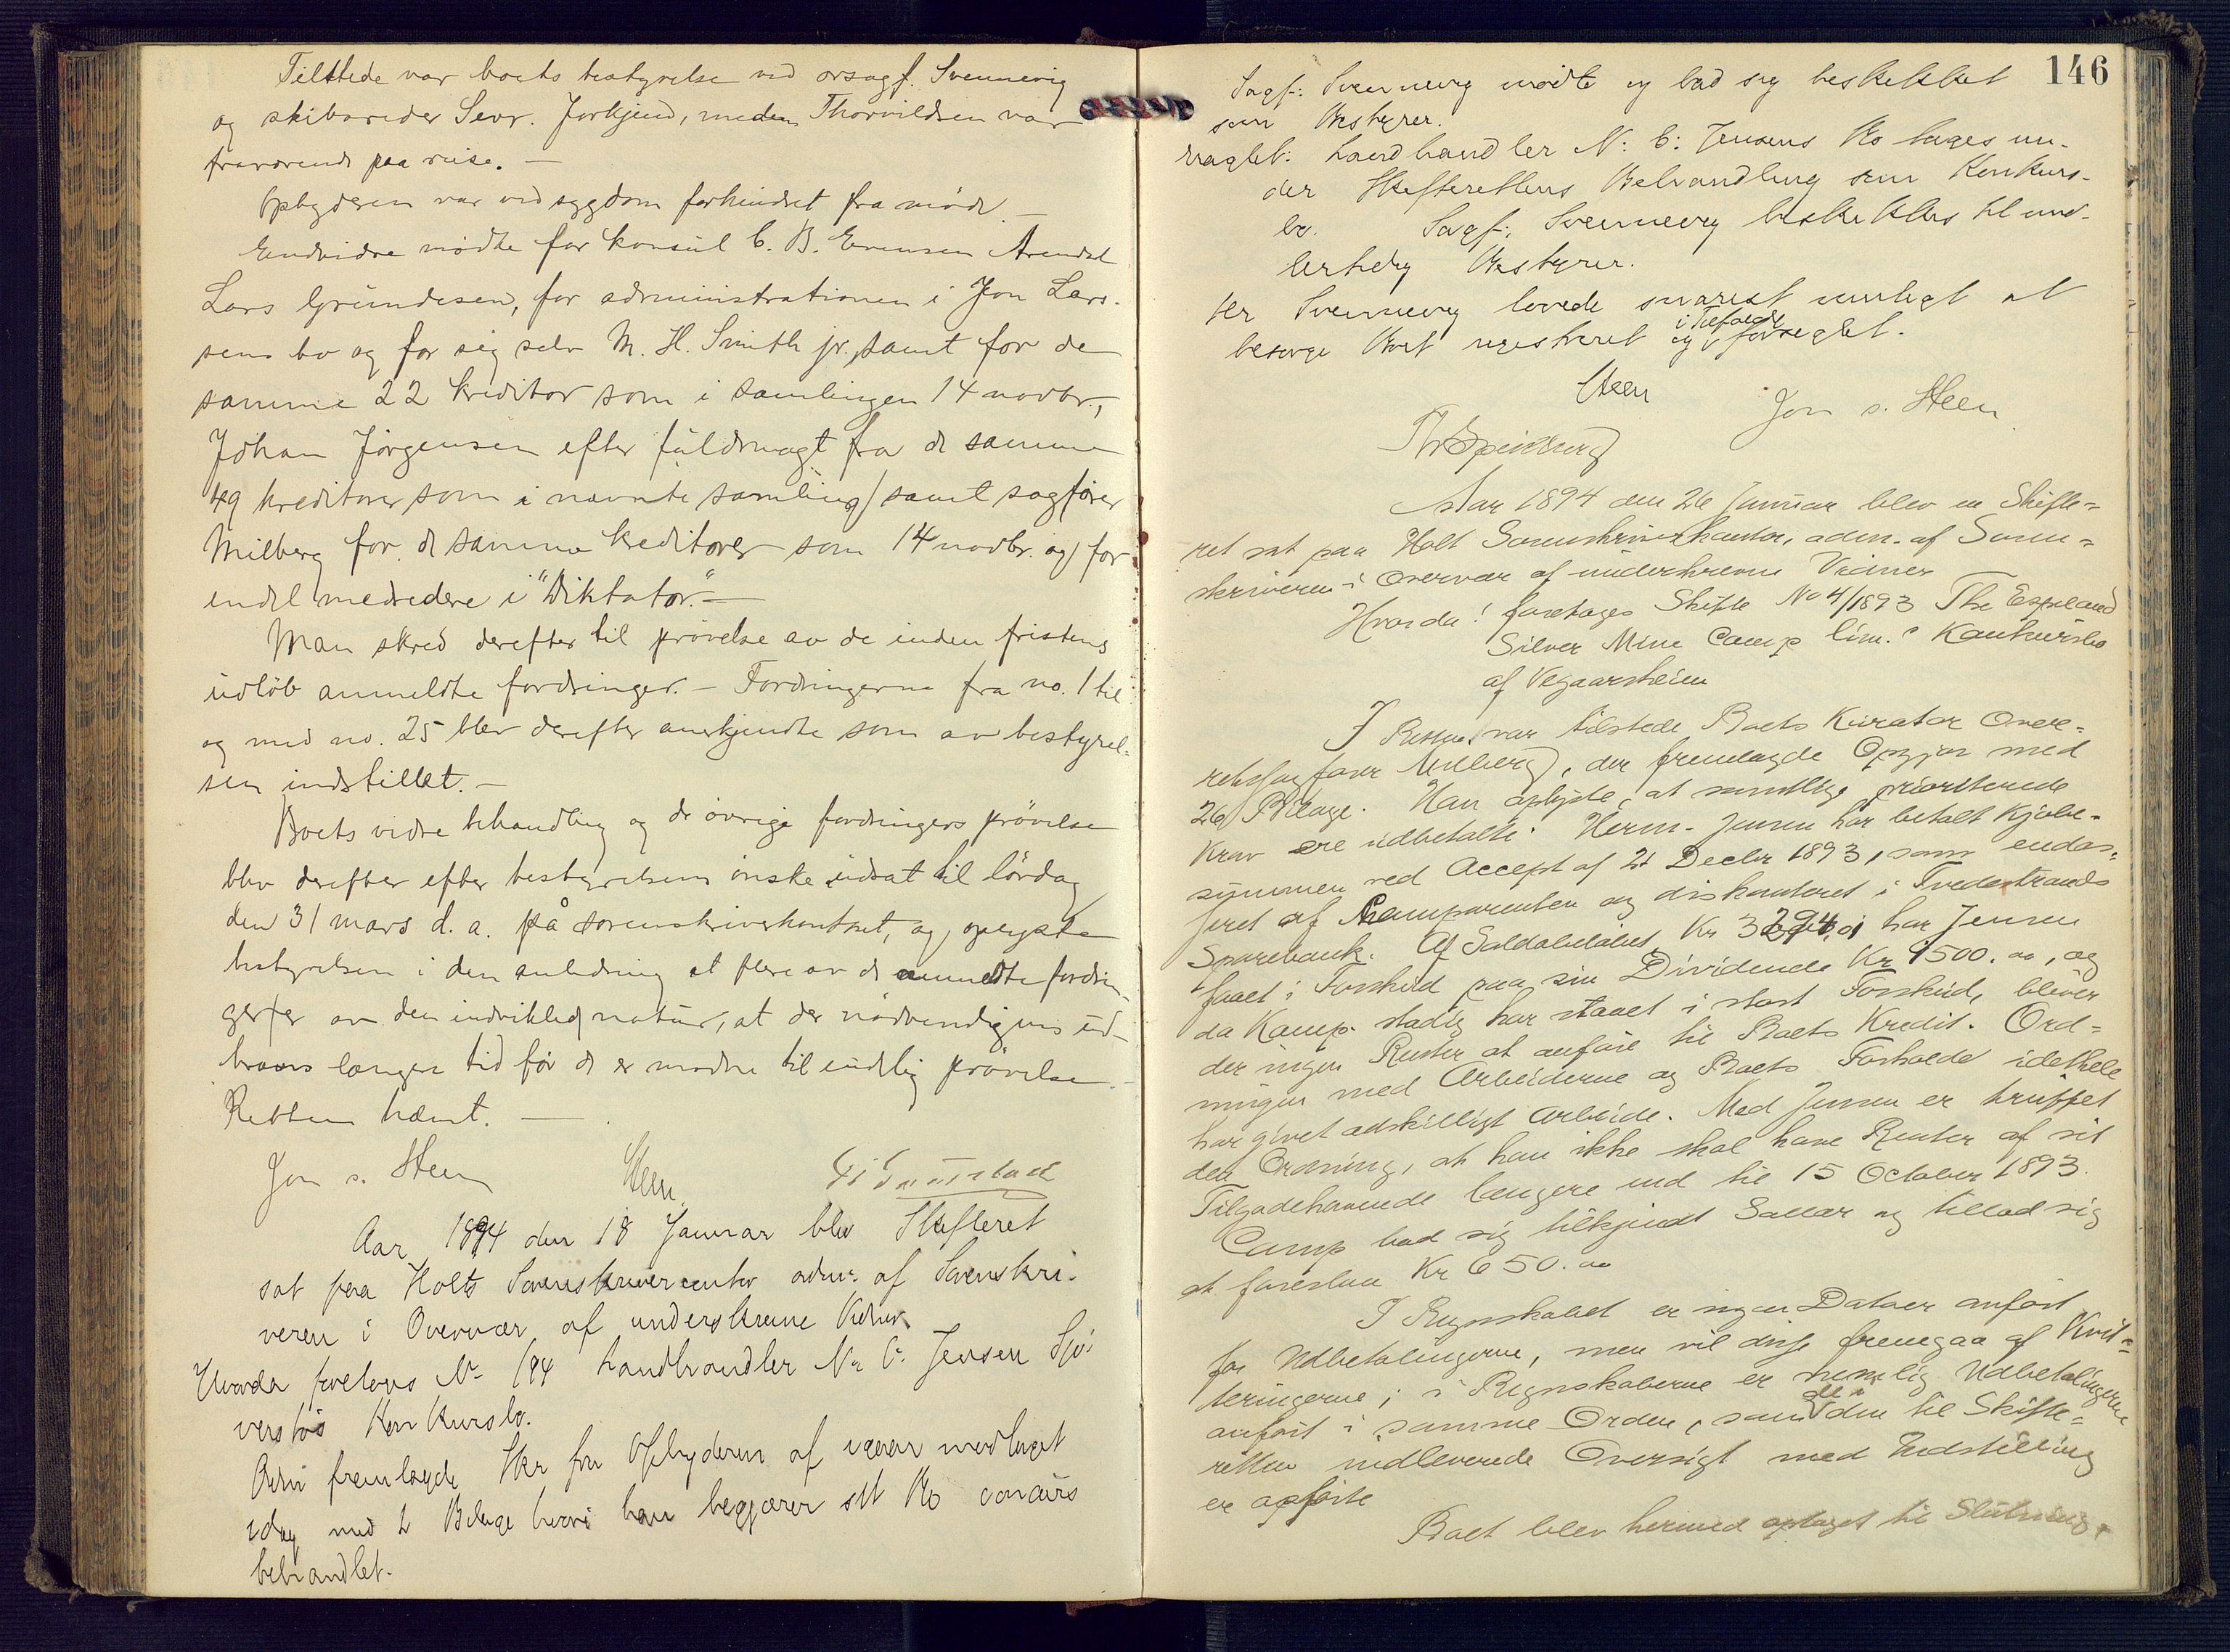 Tilstede var boets bestyrelse ved orsagf. Svennevig
og skibsreder Sevr. Jorkjend, meden Thorvildsen var
fraværende paa reise. —
Opbyderen var ved sygdom forhindret fra møde. —
Endvidre mødte for konsul C. B. Evensen Arendal
Lars Grundesen, for administrationen i Jon Lars-
sens bo og for sig selv M. H. Smith jr., samt for de
samme 22 kreditor som i samlingen 14 novbr.,
Johan Jørgensen efter fuldmagt fra de samme
49 kreditorer som i nævnte samling/ samt sagfører
Milberg for de samme kreditorer som 14 novbr. og for
endel medredere i "Diktator". —
Man skred derefter til prøvelse av de inden fristens
udløb anmeldte fordringer. — Fordringerne fra no. 1 til
og med no. 25 blev derefter anerkjendte som av bestyrel-
sen indstillet. —
Boets vidre behandling og de øvrige fordringers prøvelse
blev derefter efter bestyrelsens ønske udsat til lørdag
den 31 mars d. a. på sorenskriverkontoret, og oplyste
bestyrelsen i den anledning at flere av de anmeldte fordrin-
ger er av den indviklede natur, at der nødvendigvis ud-
kræves længere tid før de er modne til endelig prøvelse. —
Retten hævet. —
Jon s. Steen Steen
Aar 1894 den 18 Januar blev Skifteret
sat paa Holts Sorenskrivercontor adm. af Sorenskri-
veren i Overvær af underskrevne Vidner
Hvorda foretoges No 1/94 Landhandler N. C. Jensen Sjø-
verstøs Konkursbo.
Adm fremlagde Skr fra Opbyderen af igaar modtaget
idag med 2 Bilage hvori han begjærer sit Bo concurs
behandlet.
146
Sagf. Svennevig mødte og bad sig beskikket
som Bestyrer.
vragtet: Landhandler N. C. Jensens Bo tages un-
der Skifterettens Behandling som Konkurs-
bo. Sagf. Svennevig beskikkes til mid-
lertidig Bestyrer.
Hr Svennevig lovede snarest muligt at
besørge Boet registreret og i Tilfælde forseglet.
Steen Jon s. Steen
Aar 1894 den 26 Januar blev en Skifte-
ret sat paa Holt Sorenskriverkontor, adm. af Soren-
skriveren i Overvær af underskrevne Vidner
Hvorda: foretoges Skifte No 4/1893 The Espeland
Silver Mine Camp lim.s Konkursbo
af Vegaarsheien
I Retten var tilstede Boets Kurator Over-
retssagfører Milberg, der fremlagde Opgjør med
26 Bilage. Han oplyste, at samtlige prioriterede
Krav ere udbetalte. Herm. Jensen har betalt Kjøbe-
summen ved Accept af 21 Decbr 1893, som endos-
seret af Komparenten og diskonteret i Tvedestrands
Sparebank. Af Saldobeløbet Kr 3294,01 har Jensen
faaet i Forskud paa sin Dividende Kr 1500.00, og
da Komp. stadig har staaet i stort Forskud, bliver
der ingen Renter at anføre til Boets Kredit. Ord-
ningen med Arbeiderne og Boets Forholde idethele
har givet adskilligt Arbeide. Med Jensen er truffet
den Ordning, at han ikke skal have Renter af sit
Tilgodehavende længere end til 15 October 1893.
Comp bad sig tilkjendt Salær og tillod sig
at foreslaa Kr 650.00
I Regnskabet er ingen Datoer anført
for Udbetalingerne, men vil disse fremgaa af Kvit-
teringerne; i Regnskaberne er nemlig Udbetalingerne
anført i samme Orden, som de i den til Skifte-
retten indleverede Oversigt med Indstilling
er opførte
Boet blev hermed optaget til Slutning.